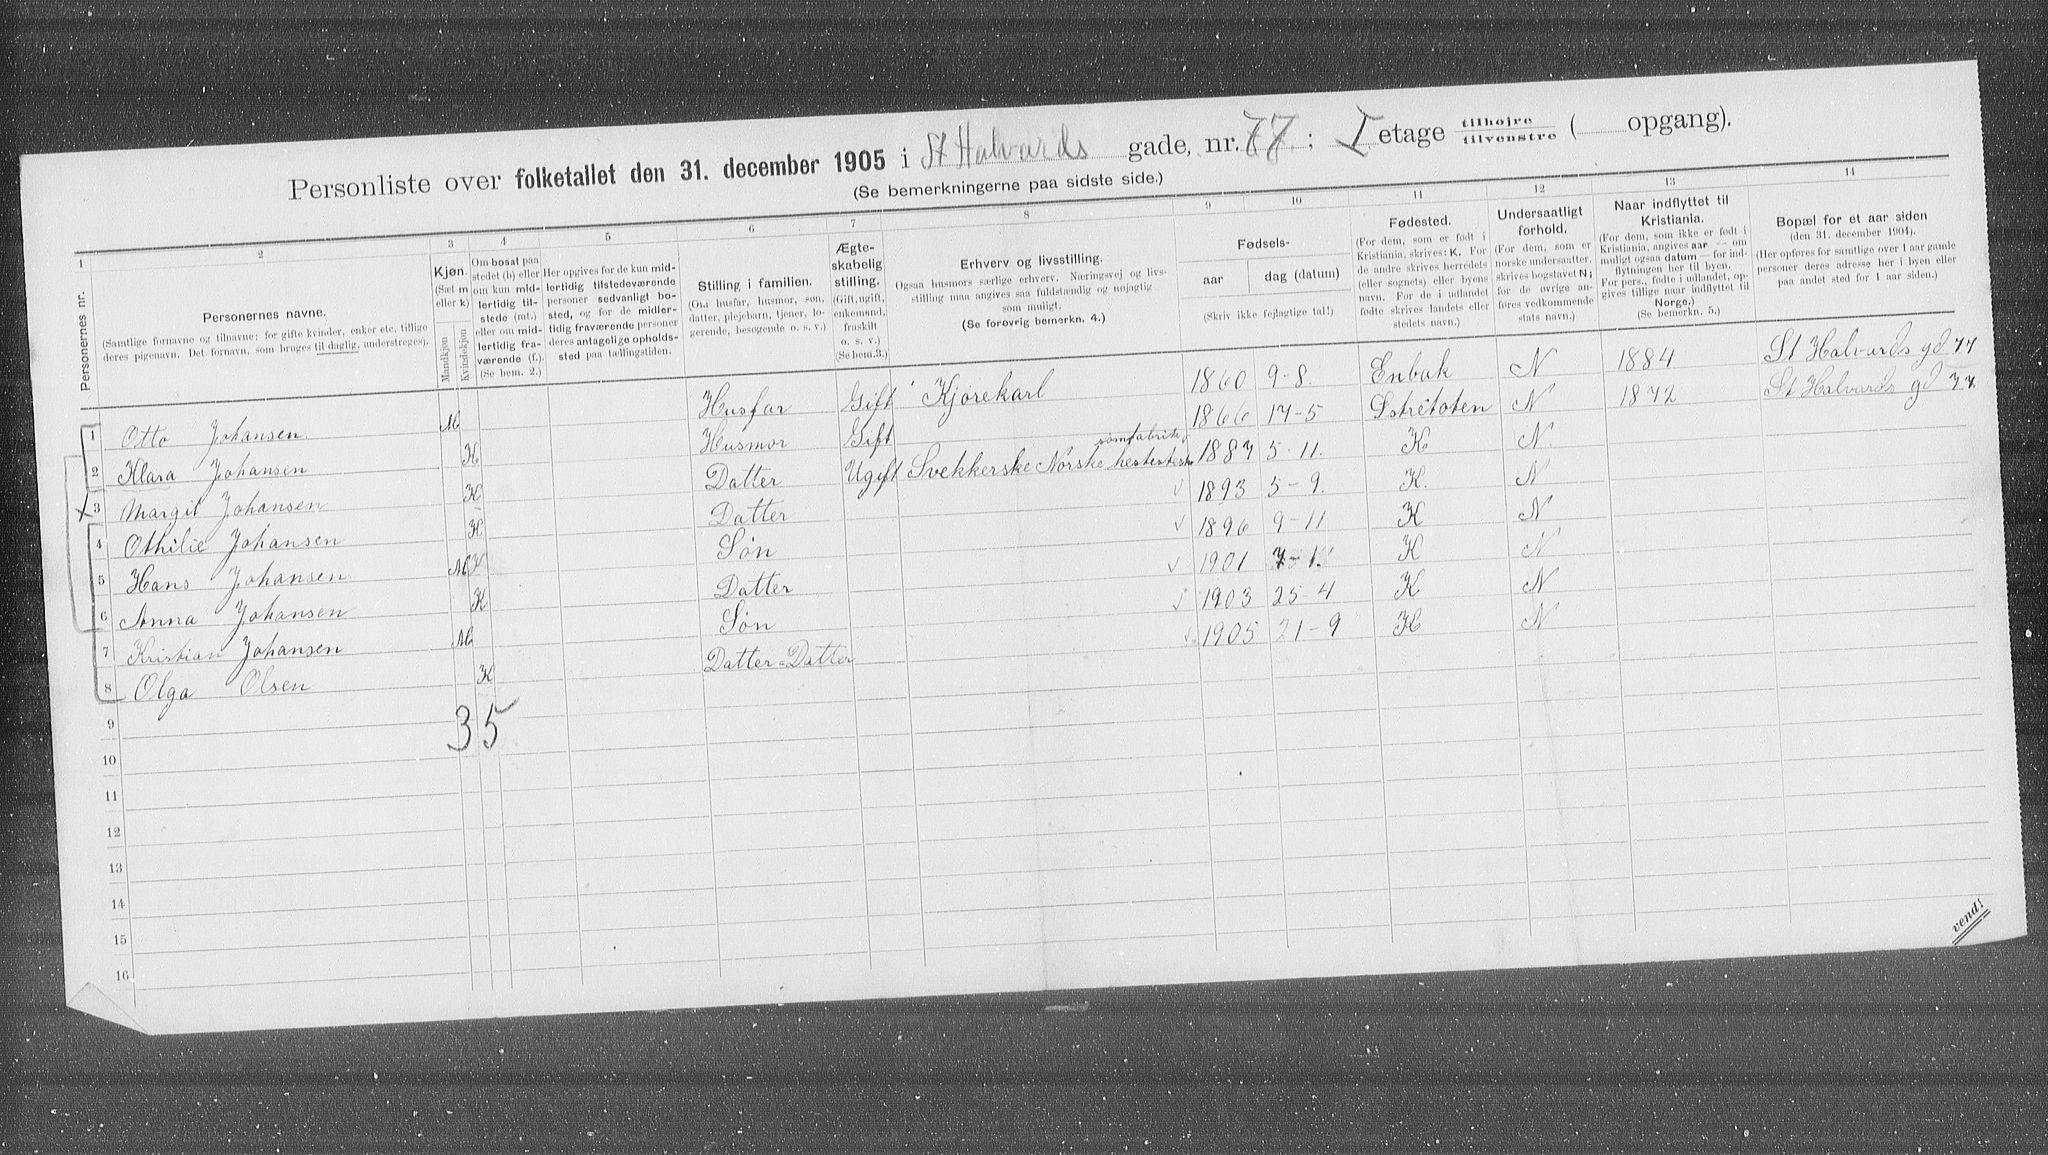 Personliste over folketallet den 31. december 1905 i St Halvards gade, nr. 77; I etage tilhøjre / tilvenstre ( opgang).
(Se bemerkningerne paa sidste side.)
1 2 3 4 5 6 7 8 9 10 11 12 13 14
Personernes nr.
Personernes navne.
(Samtlige fornavne og tilnavne; for gifte kvinder, enker etc. tillige
deres pigenavn. Det fornavn, som bruges til daglig, understreges).
Kjøn
(Sæt m
eller k)
Mandkjøn
Kvindekjøn
Om bosat paa
stedet (b) eller
om kun mid-
lertidig til-
stede (mt.)
eller om mid-
lertidig fra-
værende (f.)
(Se bem. 2.)
Her opgives for de kun mid-
lertidig tilstedeværende
personer sedvanligt bo-
sted, og for de midler-
tidig fraværende personer
deres antagelige opholds-
sted paa tællingstiden.
Stilling i familien.
(Om husfar, husmor, søn,
datter, plejebarn, tjener, lo-
gerende, besøgende o. s. v.)
Ægte-
skabelig
stilling.
(Gift, ugift,
enkemand,
fraskilt
o. s. v.)
(Se bem.3.)
Erhverv og livsstilling.
Ogsaa husmors særlige erhverv. Næringsvej og livs-
stilling maa angives saa fuldstændig og nøjagtig
som muligt.
(Se forøvrig bemerkn. 4.)
Fødsels-
aar
dag (datum)
(Skriv ikke fejlagtige tal!)
Fødested.
(For dem, som er født i
Kristiania, skrives: K. For
de andre skrives herredets
(eller sognets) eller byens
navn. For de i udlandet
fødte skrives landets eller
stedets navn.)
Undersaatligt
forhold.
(For dem, som er
norske undersaatter,
skrives bogstavet N;
for de øvrige an-
føres vedkommende
stats navn.)
Naar indflyttet til
Kristiania.
(For dem, som ikke er født i
Kristiania, angives aar — om
muligt ogsaa datum — for ind-
flytningen her til byen.
For pers., fødte i udlandet, op-
gives tillige naar indflyttet til
Norge.)
(Se bemerkn. 5.)
Bopæl for et aar siden
(den 31. december 1904).
(Her opføres for samtlige over 1 aar gamle
personer deres adresse her i byen eller
paa andet sted for 1 aar siden.)
1 Otto Johansen M Husfar Gift Kjørekarl 1860 9-8. Enbak N 1884 St Halvards gd 77
2 Klara Johansen K Husmor Gift 1866 17-5 Østretoten N 1872 St Halvards gd 77.
3 Margit Johansen K Datter Ugift Svekkerske Norske hestesko sømfabrik 1887 5-11. K N.
4 Othilie Johansen K Datter 1893 5-9. K. N
5 Hans Johansen M K Søn 1896 9-11 K N
6 Anna Johansen K Datter 1901 7-1. K N
7 Kristian Johansen M Søn 1903 25-4 K N
8 Olga Olsen K Datter-Datter 1905 21-9 K N
9
3 5
10
11
12
13
14
15
16
vend!